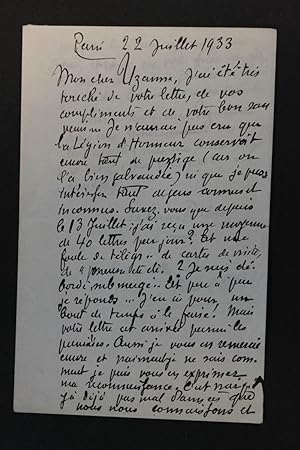 Paris 22 Juillet 1933
Mon cher Uzanne, j'ai été très
touché de votre lettre, de vos
compliments et de votre bon sou
venir. Je n'aurais pas cru que
la Légion d'Honneur conservait
encore tant de prestige (car on
l'a bien galvaudée) ni que je puisse
intéresser tant de gens connus et
inconnus. Savez vous que depuis
le 13 Juillet j'ai reçu une moyenne
de 40 lettres par jour? et une
foule de télégr... de cartes de visite,
de pneus etc etc. ? Je suis dé
bordé submergé. Dès que
je réponds... J'en ai pour un
bout de temps à le faire. Mais
votre lettre est arrivée parmi les
premières. Aussi je vous en remercie
encore et vraiment je ne sais com
ment je puis vous en exprimer
ma reconnaissance. C'est
déjà pas mal d'années que
nous nous connaissons et